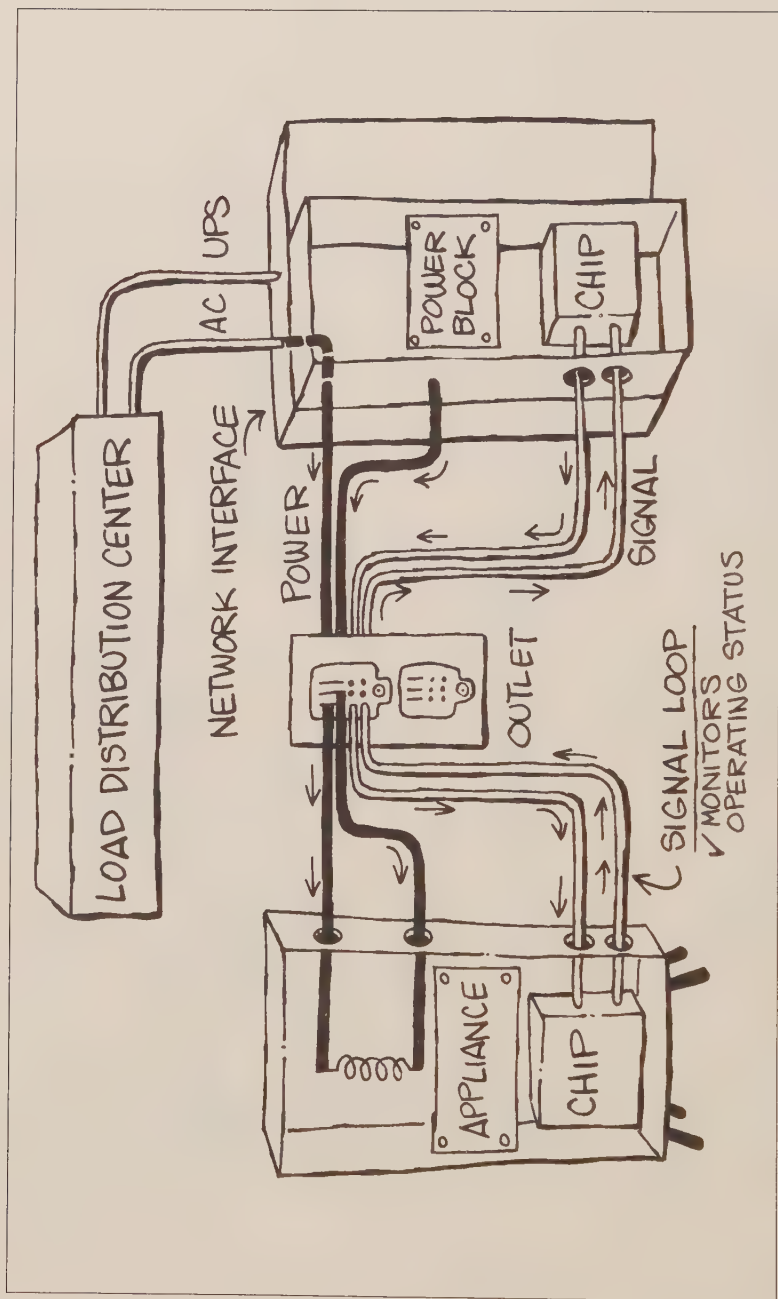 LOAD DISTRIBUTION CENTER
AC
UPS
NETWORK INTERFACE
POWER
POWER
BLOCK
CHIP
SIGNAL
OUTLET
APPLIANCE
CHIP
SIGNAL LOOP
✓ MONITORS
OPERATING STATUS